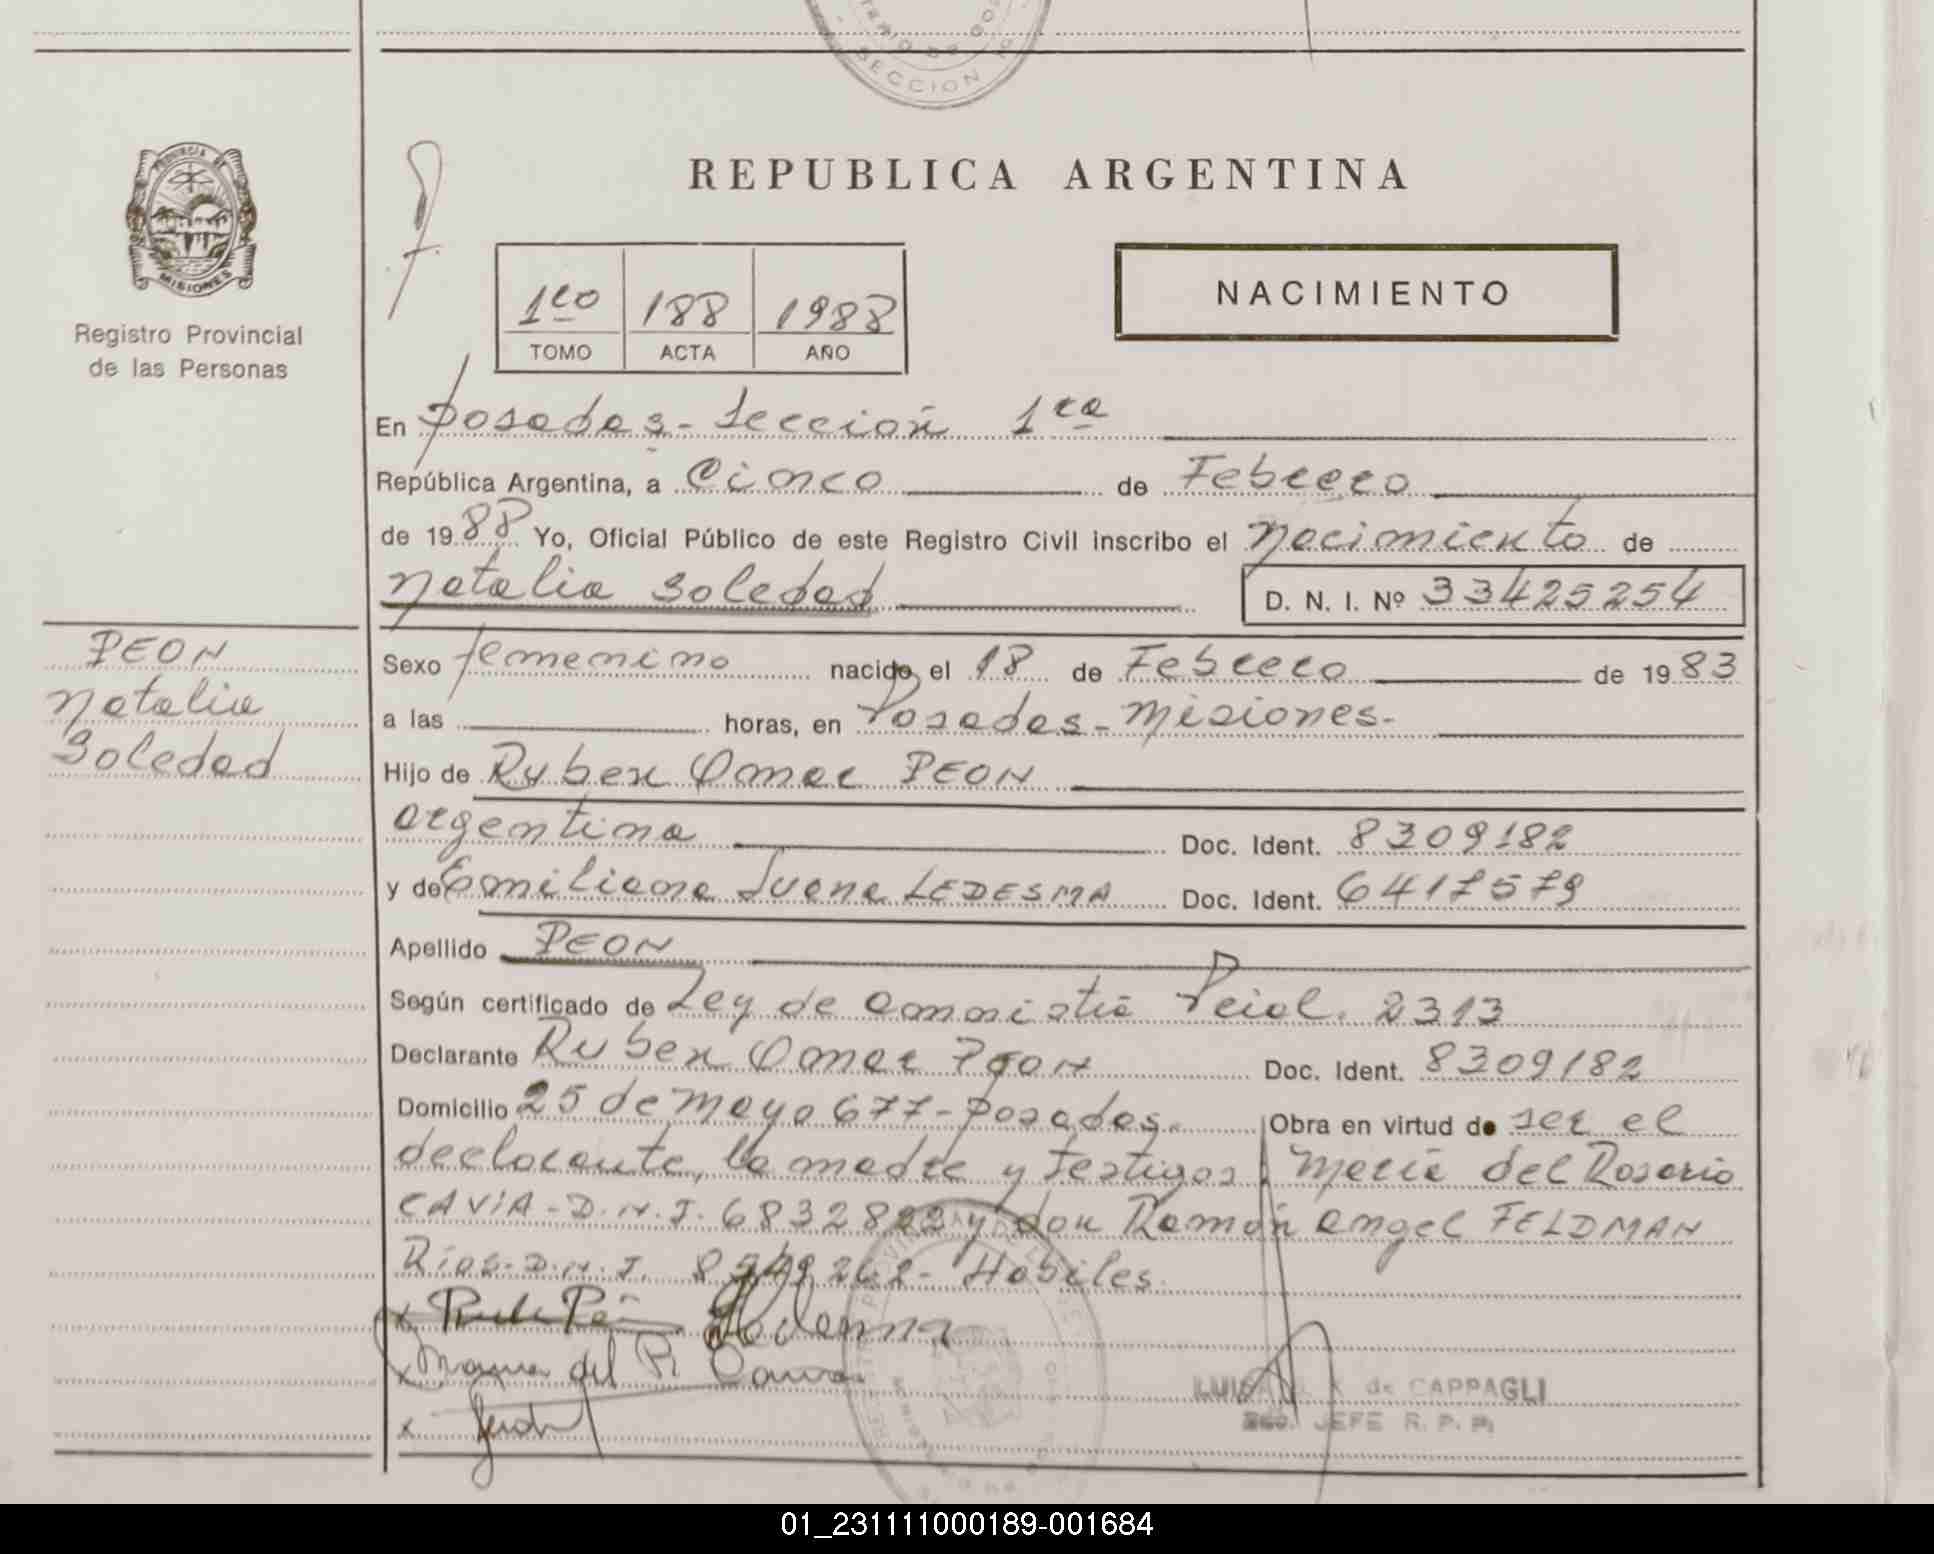 SECCION 1a
REPUBLICA ARGENTINA
PROVINCIA DE
MISIONES
Registro Provincial
de las Personas
1ro 188 1988
TOMO ACTA AÑO
NACIMIENTO
En Posadas - Sección 1ra
República Argentina, a Cinco de Febrero
de 1988 Yo, Oficial Público de este Registro Civil inscribo el Nacimiento de
Natalia Soledad D. N. I. Nº 33425254
PEON
Natalia
Soledad
Sexo femenino nacido el 18 de Febrero de 1983
a las horas, en Posadas - Misiones -
Hijo de Ruben Omar PEON
argentino Doc. Ident. 8309182
y de Emiliana Juana LEDESMA Doc. Ident. 6417579
Apellido PEON
Según certificado de Ley de amnistia Pcial. 2313
Declarante Ruben Omar PEON Doc. Ident. 8309182
Domicilio 25 de Mayo 677 - Posadas. Obra en virtud de ser el
declarante, la madre y testigos: Maria del Rosario
CAVIA - D.N.I. 6832822 y don Ramón angel FELDMAN
Rios - D.N.I. 8549262 - Habiles.
x
x Maria del R Cavia
x
LUISA de CAPPAGLI
JEFE R. P. P.
01_231111000189-001684